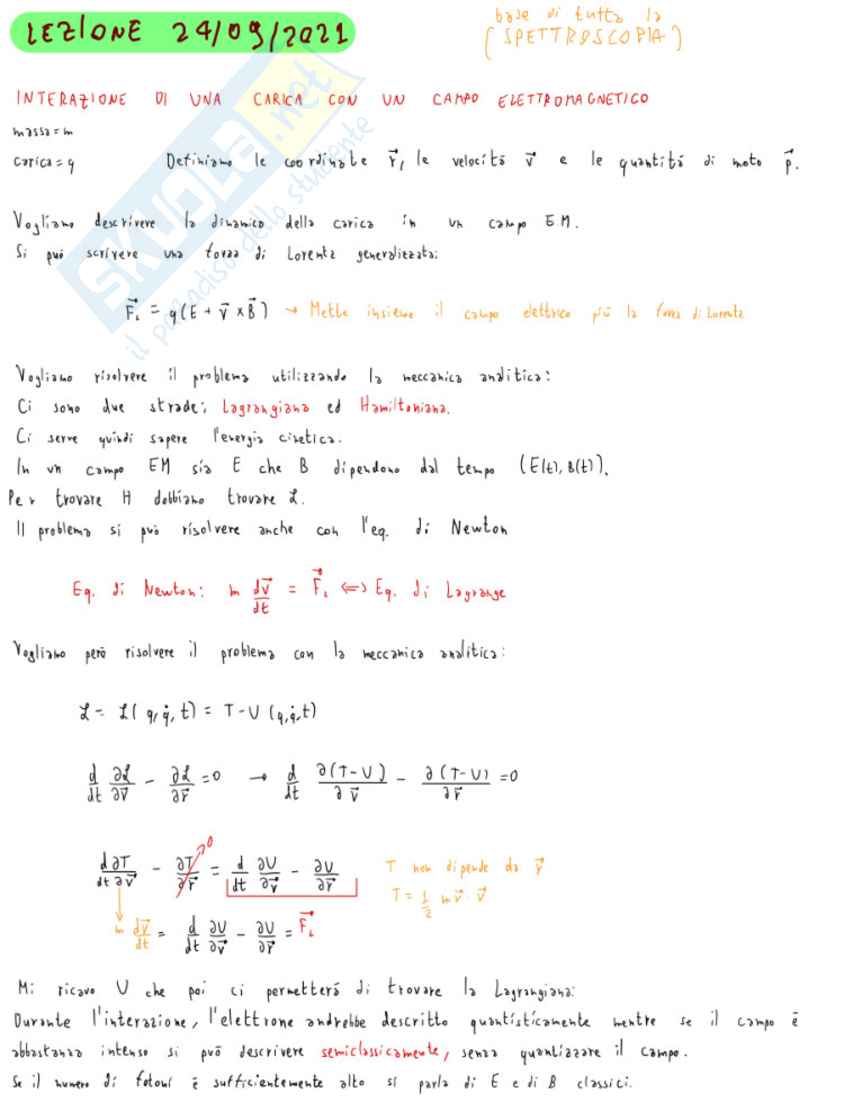 LEZIONE 24/09/2021
base di tutta la
(SPETTROSCOPIA)
INTERAZIONE DI UNA CARICA CON UN CAMPO ELETTROMAGNETICO
massa = m
carica = q Definiamo le coordinate r⃗, le velocità v⃗ e le quantità di moto p⃗.
Vogliamo descrivere la dinamica della carica in un campo E.M.
Si può scrivere una forza di Lorentz generalizzata:
F⃗_L = q(E + v⃗ × B⃗) → Mette insieme il campo elettrico più la forza di Lorentz
Vogliamo risolvere il problema utilizzando la meccanica analitica:
Ci sono due strade: Lagrangiana ed Hamiltoniana.
Ci serve quindi sapere l'energia cinetica.
In un campo EM sia E che B dipendono dal tempo (E(t), B(t)).
Per trovare H dobbiamo trovare ℒ.
Il problema si può risolvere anche con l'eq. di Newton
Eq. di Newton: m dv⃗/dt = F⃗_L ⟺ Eq. di Lagrange
Vogliamo però risolvere il problema con la meccanica analitica:
ℒ = ℒ(q, q̇, t) = T - U(q, q̇, t)
d/dt ∂ℒ/∂v⃗ - ∂ℒ/∂r⃗ = 0 → d/dt ∂(T-U)/∂v⃗ - ∂(T-U)/∂r⃗ = 0
d/dt ∂T/∂v⃗ - ∂T/∂r⃗ 0 = d/dt ∂U/∂v⃗ - ∂U/∂r⃗ T non dipende da r⃗
T = 1/2 m v⃗ · v⃗
m dv⃗/dt = d/dt ∂U/∂v⃗ - ∂U/∂r⃗ = F⃗_L
Mi ricavo U che poi ci permetterà di trovare la Lagrangiana:
Durante l'interazione, l'elettrone andrebbe descritto quantisticamente mentre se il campo è
abbastanza intenso si può descrivere semiclassicamente, senza quantizzare il campo.
Se il numero di fotoni è sufficientemente alto si parla di E e di B classici.
SKUOLA.net
il paradiso dello studente